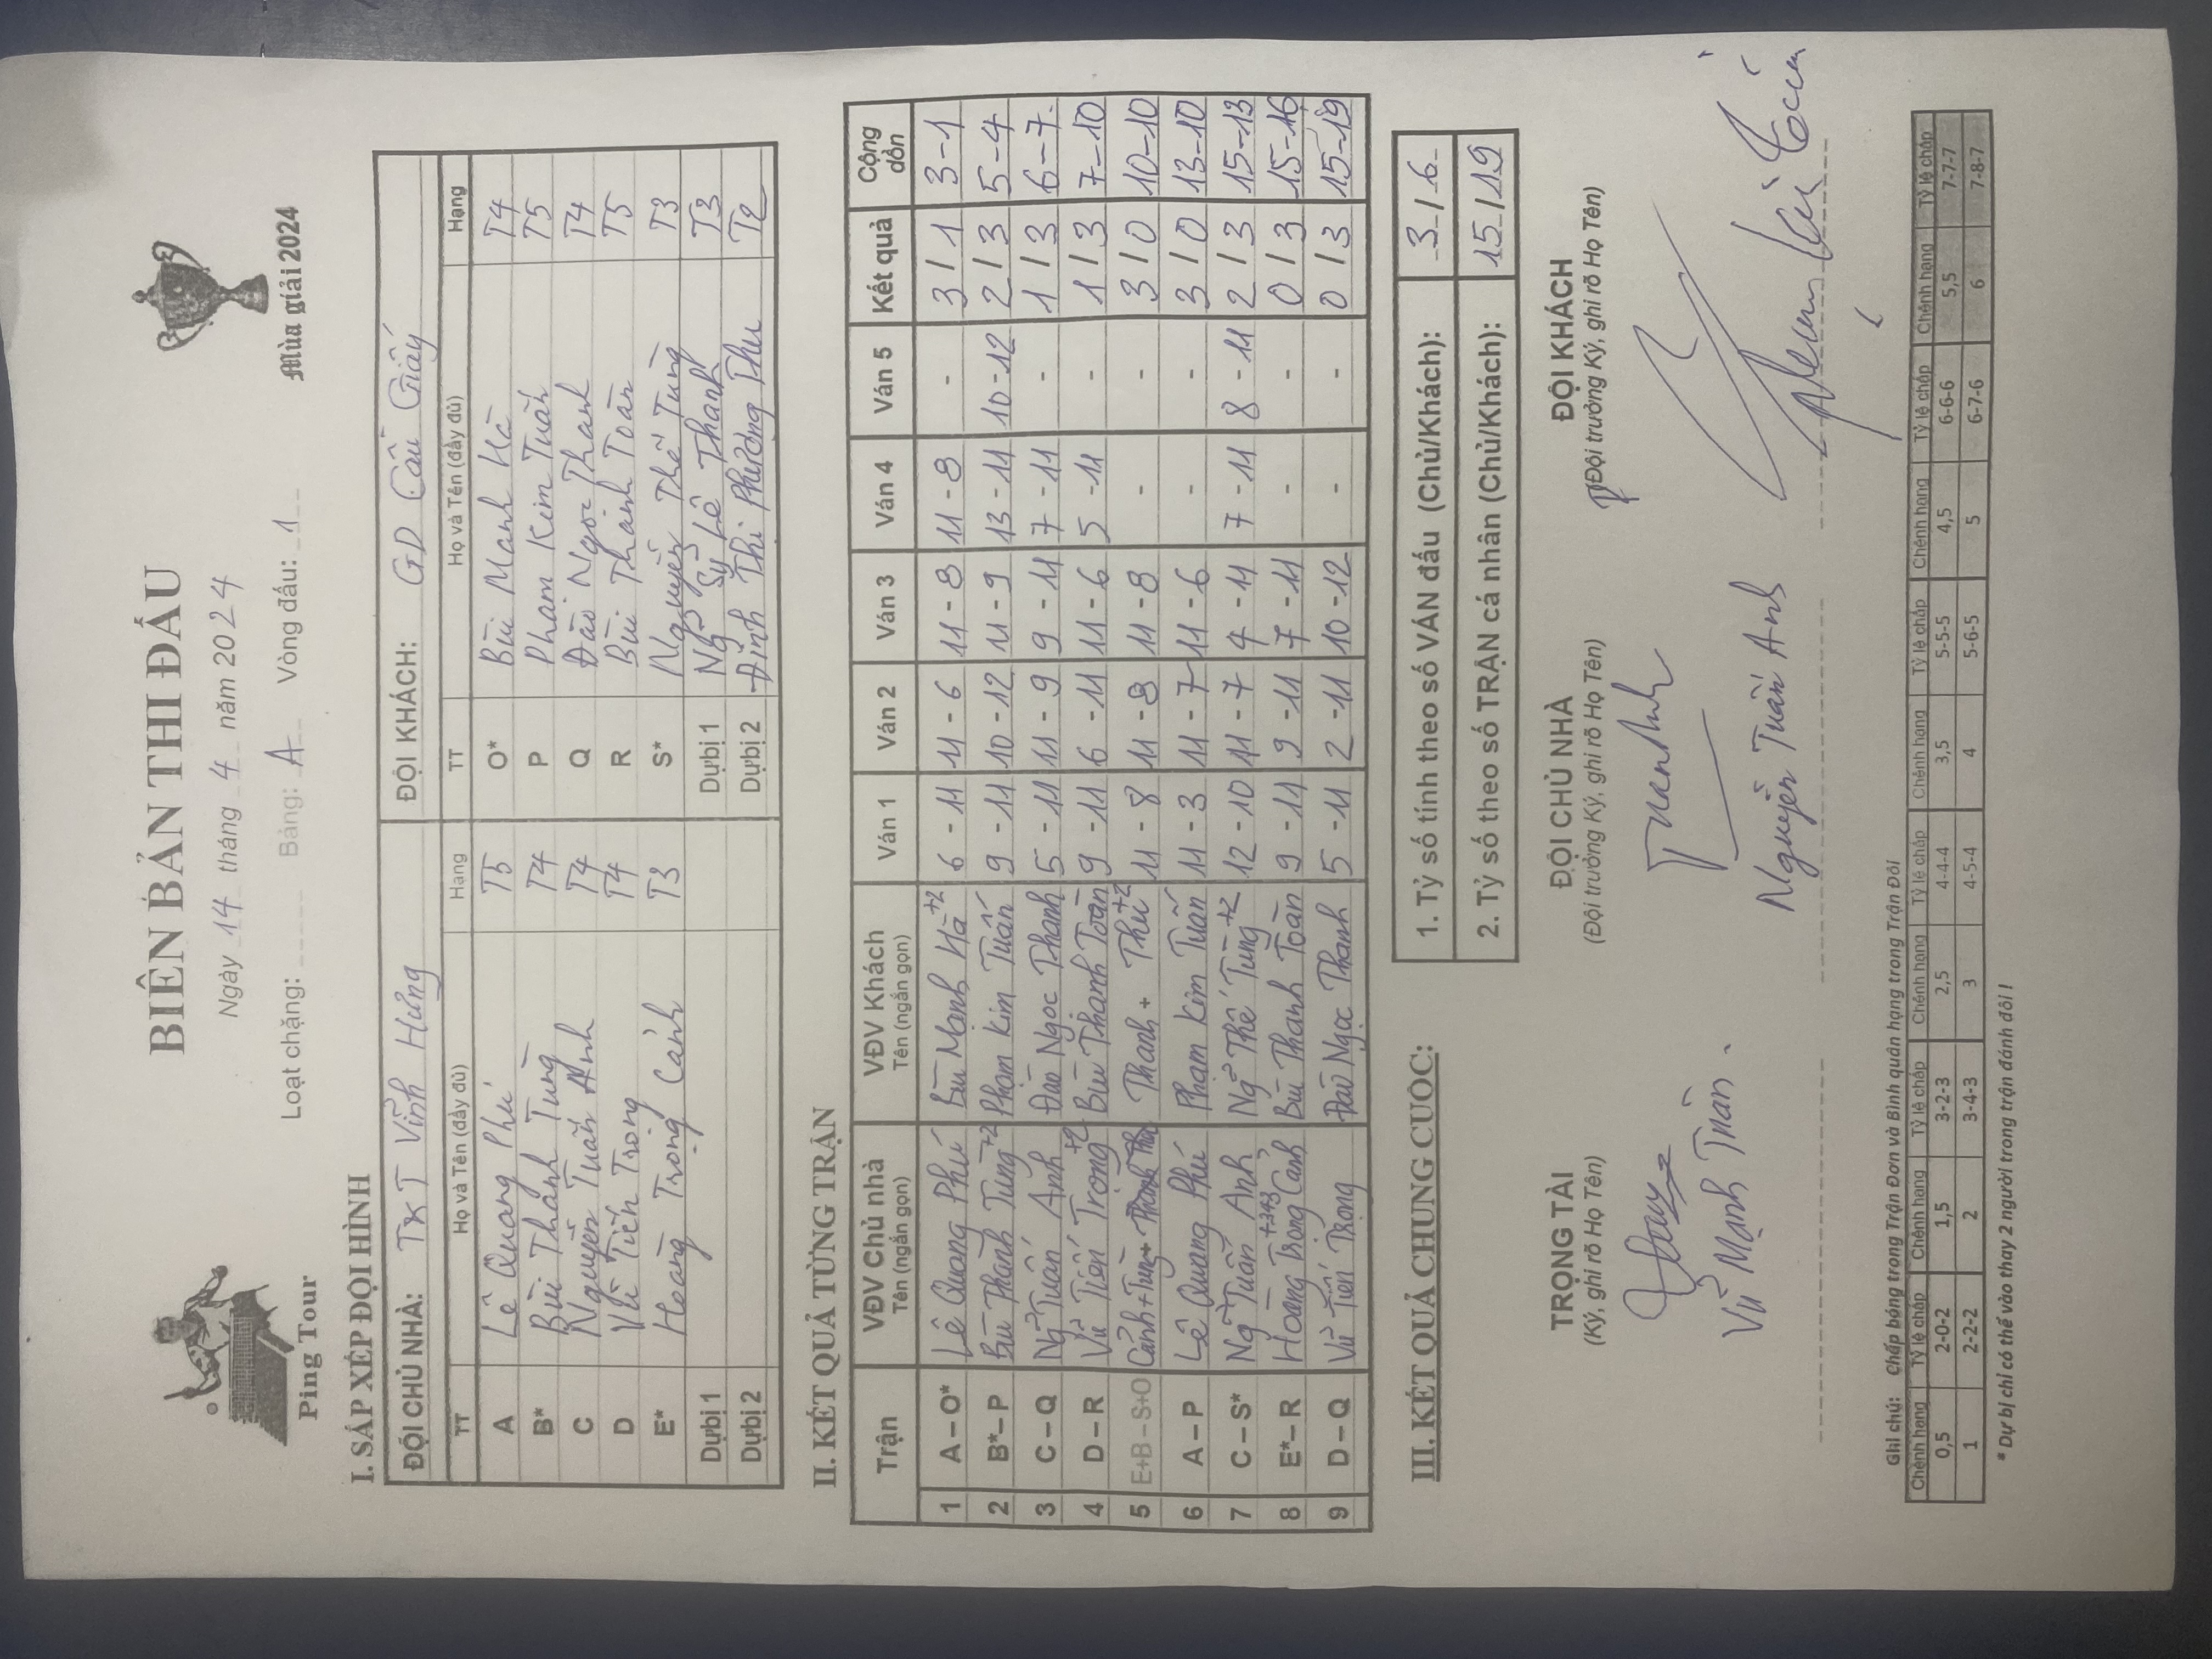 BIÊN BẢN THI ĐẤU
Ngày 14 tháng 4 năm 2024
Loạt chặng: Bảng: A Vòng đấu: 1
Ping Tour
Mùa giải 2024
I. SẮP XẾP ĐỘI HÌNH
ĐỘI CHỦ NHÀ: TKT Vĩnh Hưng ĐỘI KHÁCH: GD Cầu Giấy
TT Họ và Tên (đầy đủ) Hạng TT Họ và Tên (đầy đủ) Hạng
A Lê Quang Phú T5 O* Bùi Mạnh Hà T4
B* Bùi Thanh Tùng T4 P Phạm Kim Tuấn T5
C Nguyễn Tuấn Anh T4 Q Đào Ngọc Thanh T4
D Vũ Tiến Trọng T4 R Bùi Thanh Toàn T5
E* Hoàng Trọng Cảnh T3 S* Nguyễn Thế Tùng T3
Dự bị 1 Dự bị 1 Ngô Sỹ Lê Thanh T3
Dự bị 2 Dự bị 2 Đinh Thị Phương Thu T2
II. KẾT QUẢ TỪNG TRẬN
Trận VĐV Chủ nhà Tên (ngắn gọn) VĐV Khách Tên (ngắn gọn) Ván 1 Ván 2 Ván 3 Ván 4 Ván 5 Kết quả Cộng dồn
1 A – O* Lê Quang Phú Bùi Mạnh Hà +2 6 - 11 11 - 6 11 - 8 11 - 8 - 3 / 1 3-1
2 B* – P Bùi Thanh Tùng +2 Phạm Kim Tuấn 9 - 11 10 - 12 11 - 9 13 - 11 10 - 12 2 / 3 5-4
3 C – Q Ng Tuấn Anh Đào Ngọc Thanh 5 - 11 11 - 9 9 - 11 7 - 11 - 1 / 3 6-7
4 D – R Vũ Tiến Trọng +2 Bùi Thanh Toàn 9 - 11 6 - 11 11 - 6 5 - 11 - 1 / 3 7-10
5 E+B – S+O Cảnh + Tùng + Thanh + Thu +2 11 - 8 11 - 8 11 - 8 - - 3 / 0 10-10
6 A – P Lê Quang Phú Phạm Kim Tuấn 11 - 3 11 - 7 11 - 6 - - 3 / 0 13-10
7 C – S* Ng Tuấn Anh Ng Thế Tùng +2 12 - 10 11 - 7 4 - 11 7 - 11 8 - 11 2 / 3 15-13
8 E* – R Hoàng Trọng Cảnh Bùi Thanh Toàn 9 - 11 9 - 11 7 - 11 - - 0 / 3 15-16
9 D – Q Vũ Tiến Trọng Đào Ngọc Thanh 5 - 11 2 - 11 10 - 12 - - 0 / 3 15-19
III. KẾT QUẢ CHUNG CUỘC:
1. Tỷ số tính theo số VÁN đấu (Chủ/Khách): 3 / 6
2. Tỷ số theo số TRẬN cá nhân (Chủ/Khách): 15 / 19
TRỌNG TÀI ĐỘI CHỦ NHÀ ĐỘI KHÁCH
(Ký, ghi rõ Họ Tên) (Đội trưởng Ký, ghi rõ Họ Tên) (Đội trưởng Ký, ghi rõ Họ Tên)
Vũ Mạnh Tuân Nguyễn Tuấn Anh
Ghi chú: Chấp bóng trong Trận Đơn và Bình quân hạng trong Trận Đôi
Chênh hạng Tỷ lệ chấp Chênh hạng Tỷ lệ chấp Chênh hạng Tỷ lệ chấp Chênh hạng Tỷ lệ chấp Chênh hạng Tỷ lệ chấp Chênh hạng Tỷ lệ chấp
0,5 2-0-2 1,5 3-2-3 2,5 4-4-4 3,5 5-5-5 4,5 6-6-6 5,5 7-7-7
1 2-2-2 2 3-4-3 3 4-5-4 4 5-6-5 5 6-7-6 6 7-8-7
* Dự bị chỉ có thể vào thay 2 người trong trận đánh đôi !